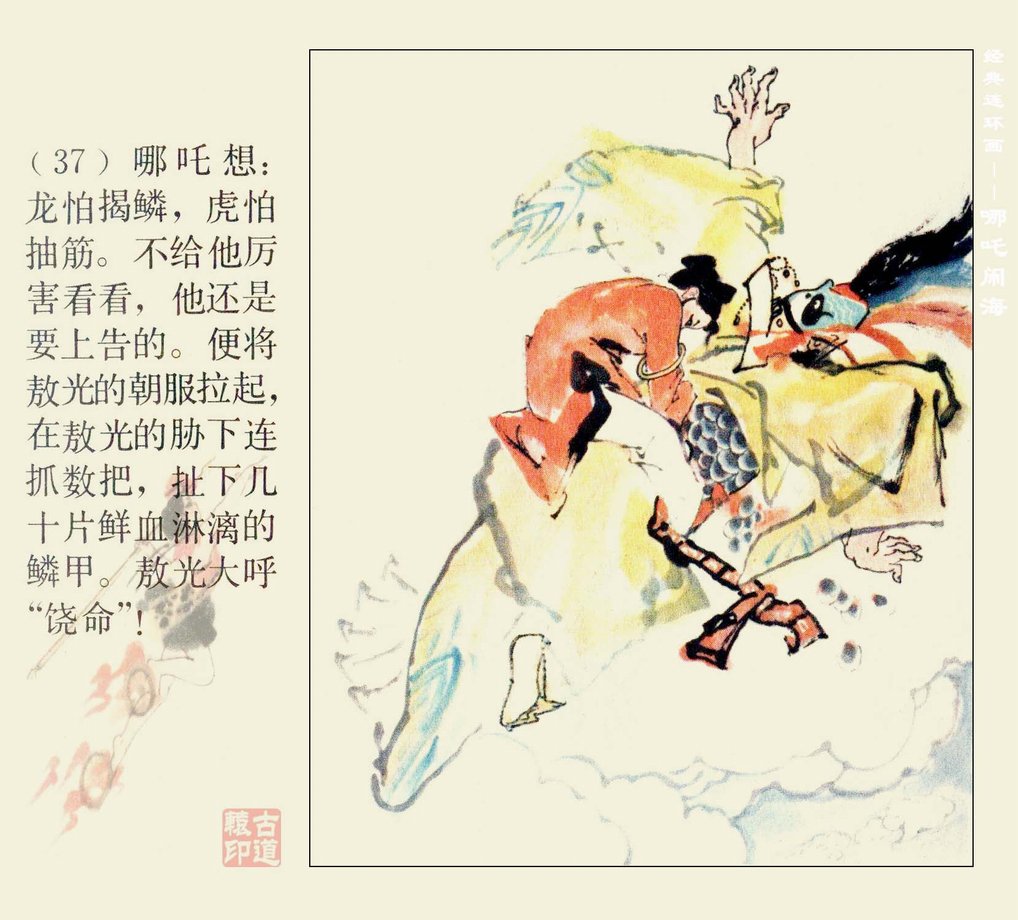 （37）哪吒想：
龙怕揭鳞，虎怕
抽筋。不给他厉
害看看，他还是
要上告的。便将
敖光的朝服拉起，
在敖光的胁下连
抓数把，扯下几
十片鲜血淋漓的
鳞甲。敖光大呼
“饶命”！
经典连环画——哪吒闹海
古道
辕印